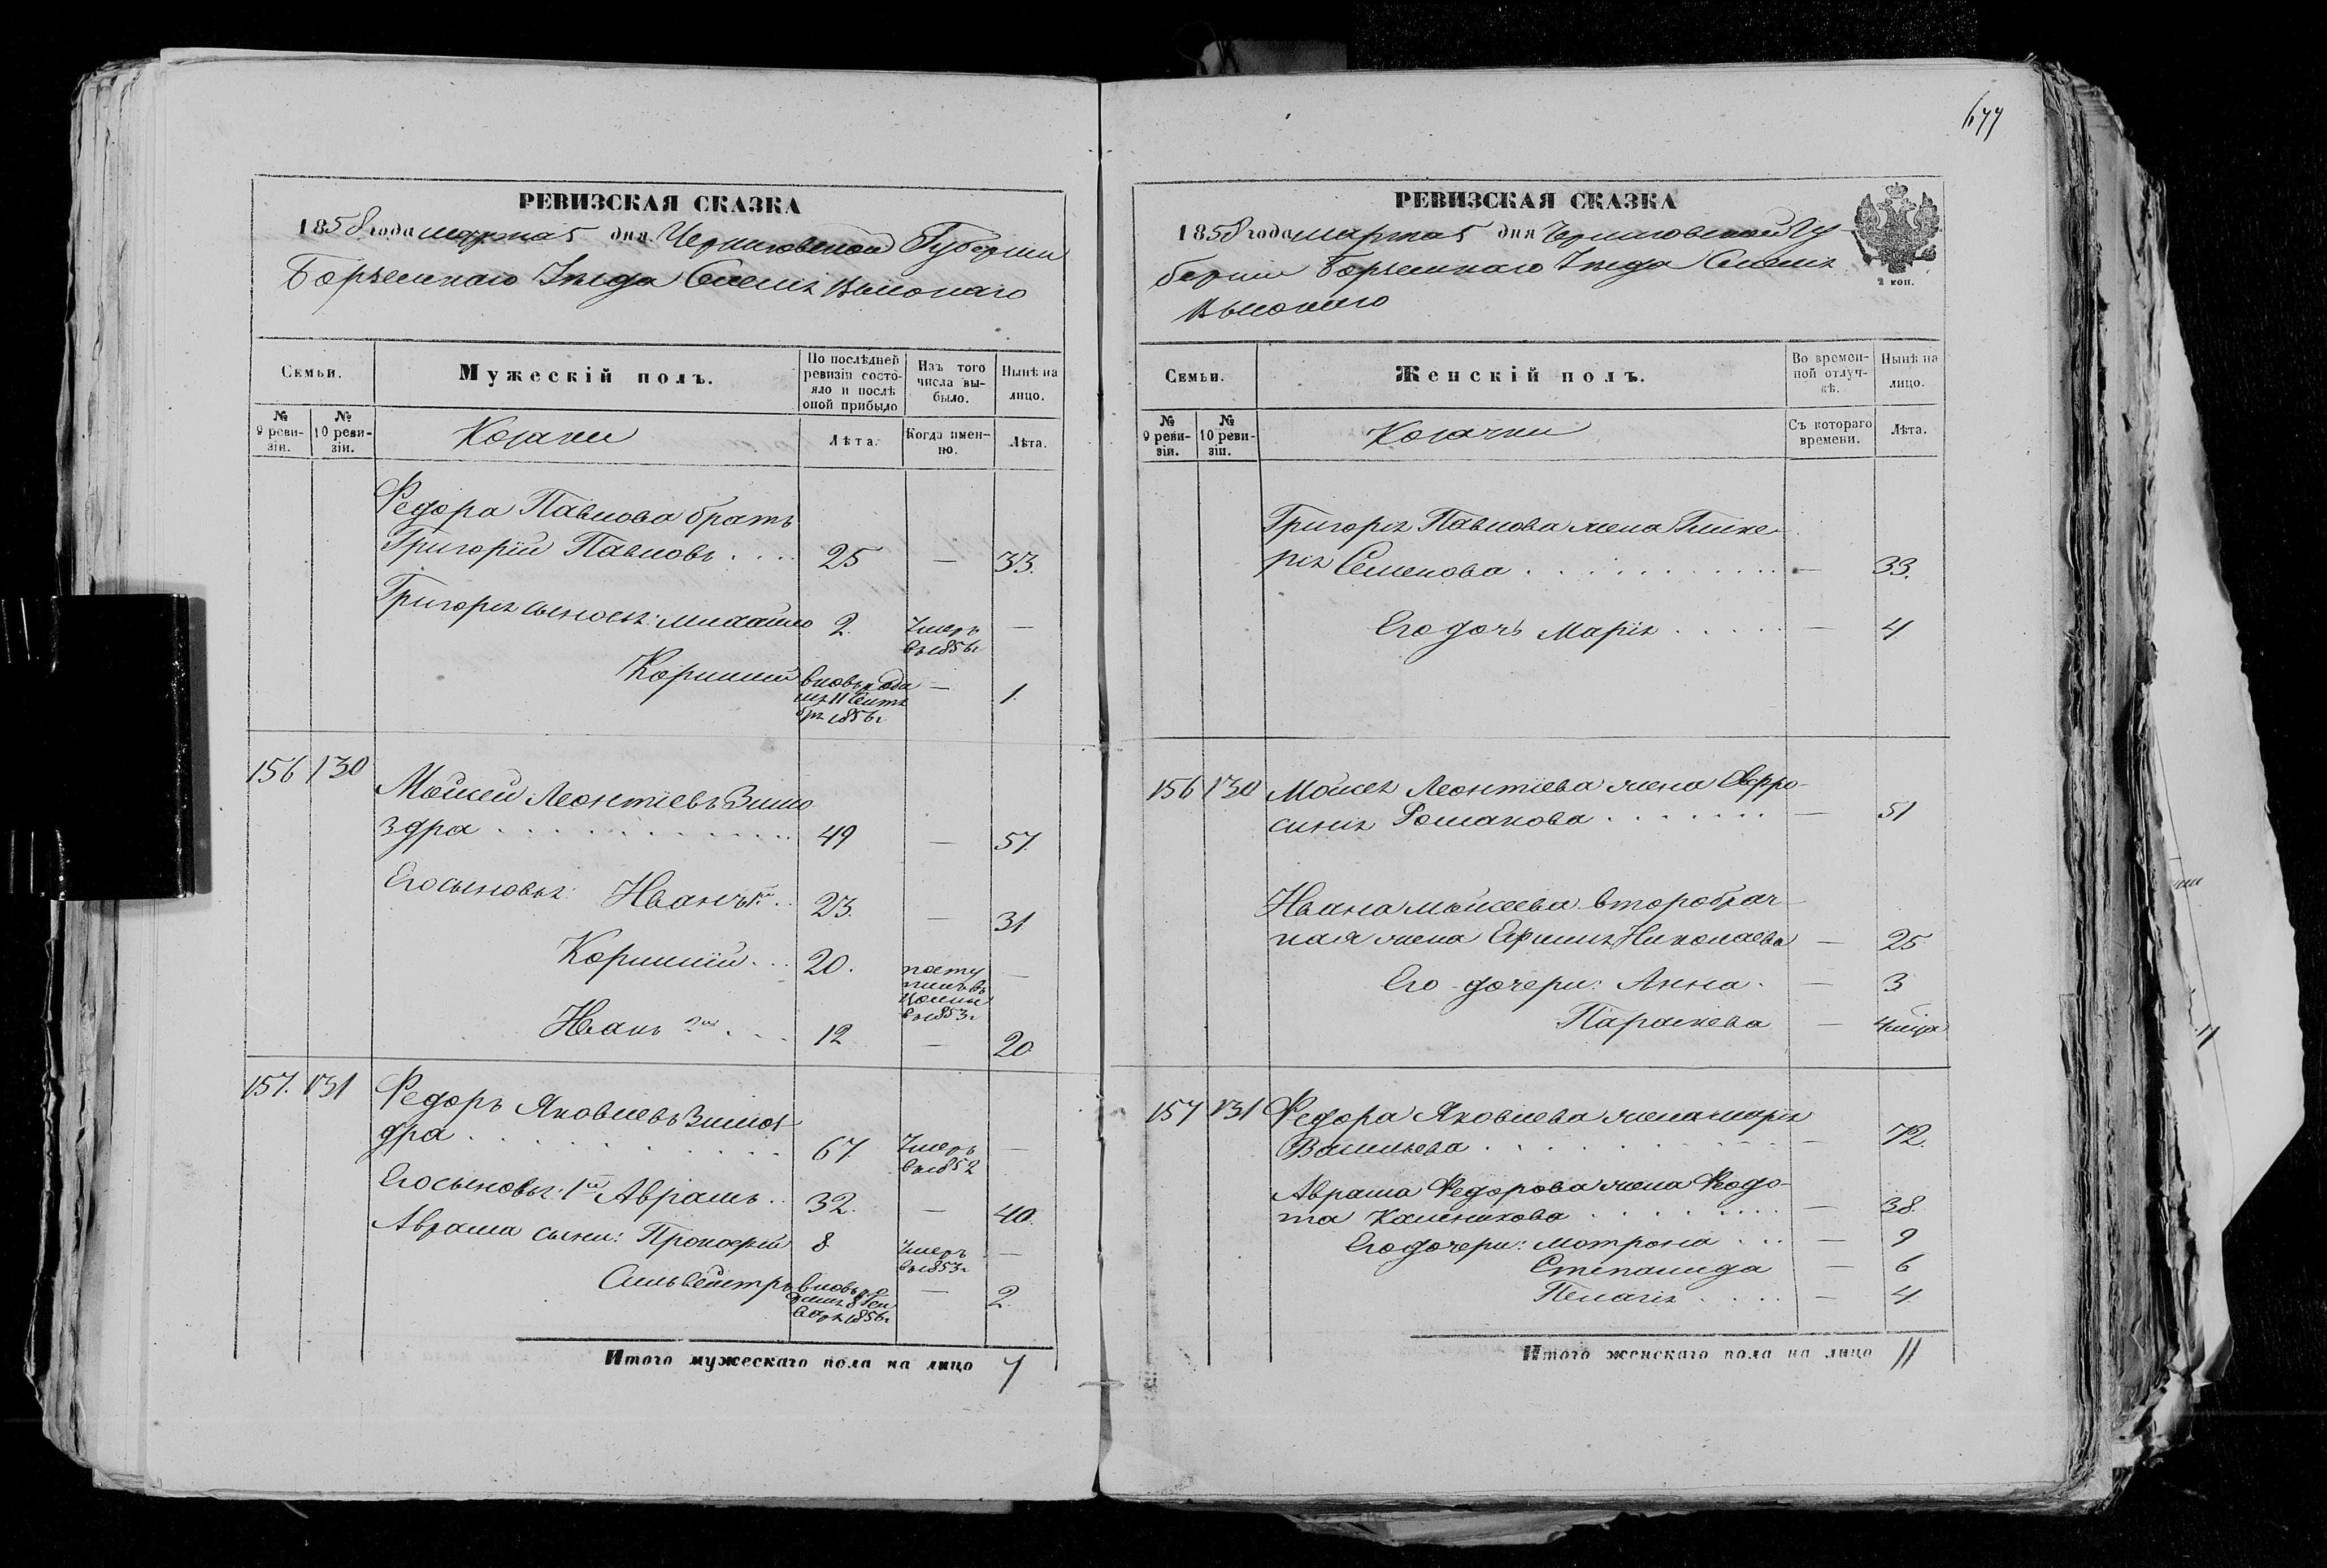 677
РЕВИЗСКАЯ СКАЗКА
1858 года марта 5 дня Черниговской Губерніи
Борзенскаго Уезда Села Высокаго
Семьи.
Мужескій полъ.
По послѣдней ревизіи состояло и послѣ оной прибыло
Изъ того числа выбыло.
Нынѣ на лицо.
№ 9 ревизіи.
№ 10 ревизіи.
Козаки
Лѣта.
Когда именно.
Лѣта.
Федора Павлова братъ
Григорій Павловъ . . . 25 — 33.
Григорія сыновья: Михайло 2. Умеръ въ 1856г —
Корнилій вновь родился 11 Сентября 1856г. — 1.
156 130 Мойсей Леонтіевъ Зимо
здра . . . 49 — 57
Его сыновья: Иванъ 1й . . 23. — 31
Корнилій . . 20. поступилъ въ 1853г —
Иванъ 2й . . . 12 — 20
157. 131 Федоръ Яковлевъ Зимоз
дра . . . 67 Умеръ въ 1852 —
Его сыновья: 1й Аврамъ . . 32. — 40.
Аврама сыны: Прокофій 8 Умеръ въ 1853г —
Сильвестръ вновь родился 8 Генваря 1856г — 2.
Итого мужескаго пола на лицо 7
РЕВИЗСКАЯ СКАЗКА
1858 года марта 5 дня Черниговской Гу
берніи Борзенскаго Уезда Села
Высокаго
2 коп.
Семьи.
Женскій полъ.
Во временной отлучкѣ.
Нынѣ на лицо.
№ 9 ревизіи.
№ 10 ревизіи.
Козачки
Съ котораго времени.
Лѣта.
Григорія Павлова жена Глике
рія Семенова . . . — 33.
Его дочь Марія . . . — 4
156 130 Мойсея Леонтіева жена Евфро-
синія Романова . . . — 51
Ивана Мойсеева второбрач-
ная жена Ефимія Николаева — 25
Его дочери: Анна . — 3
Параскева — 4 мѣца
157 131 Федора Яковлева жена Марія
Васильева . . . — 72.
Аврама Федорова жена Федо-
та Калениkова . . . — 38.
Его дочери: Мотрона . . . — 9
Степанида — 6
Пелагія . . . — 4
Итого женскаго пола на лицо 11